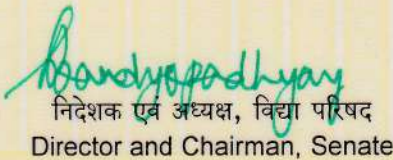 Bandyopadhyay
निदेशक एवं अध्यक्ष, विद्या परिषद
Director and Chairman, Senate